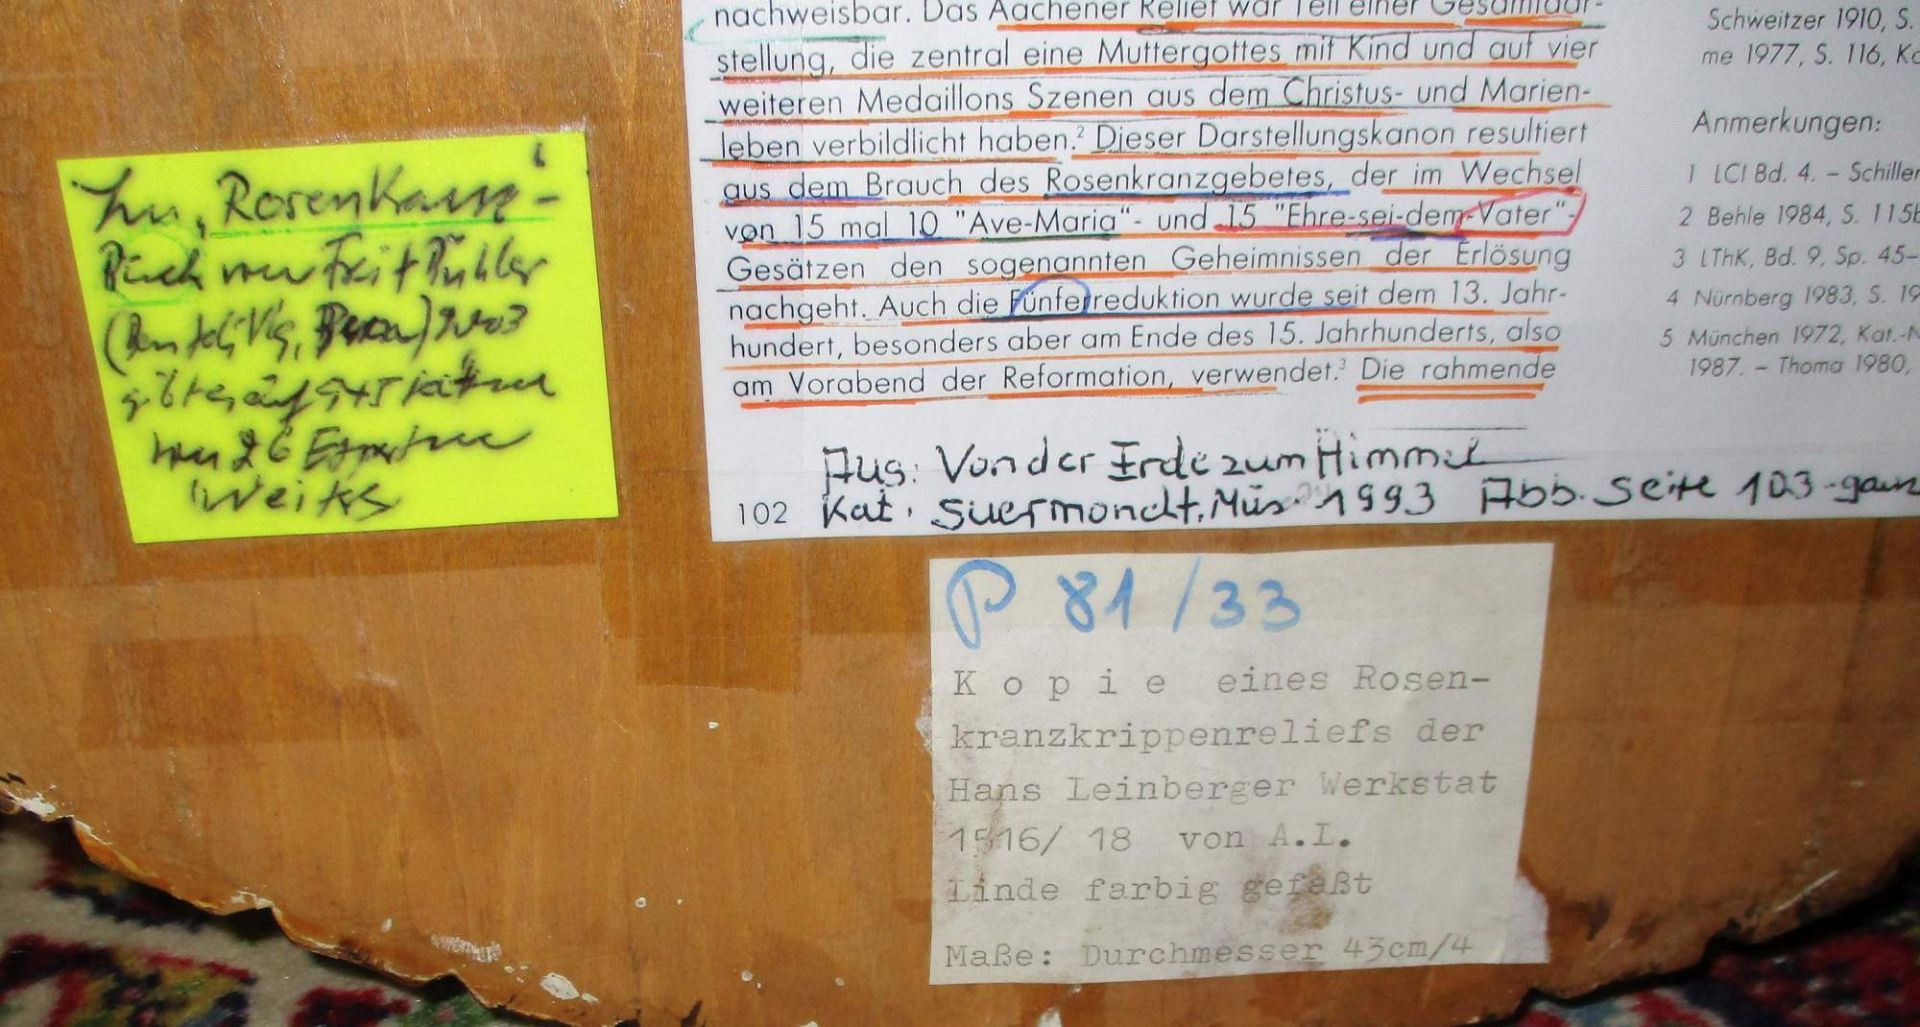 Zu "RosenKranz"-
Buch von
2003
von 26
Weiks
nachweisbar. Das Aachener Relief war Teil einer Gesamtdar-
stellung, die zentral eine Muttergottes mit Kind und auf vier
weiteren Medaillons Szenen aus dem Christus- und Marien-
leben verbildlicht haben.² Dieser Darstellungskanon resultiert
aus dem Brauch des Rosenkranzgebetes, der im Wechsel
von 15 mal 10 "Ave-Maria"- und 15 "Ehre-sei-dem-Vater"-
Gesätzen den sogenannten Geheimnissen der Erlösung
nachgeht. Auch die Fünferreduktion wurde seit dem 13. Jahr-
hundert, besonders aber am Ende des 15. Jahrhunderts, also
am Vorabend der Reformation, verwendet.³ Die rahmende
Aus: Von der Erde zum Himmel
102 Kat. Suermondt. Mus. 1993 Abb. Seite 103 ganz
Schweitzer 1910, S.
me 1977, S. 116, Ka
Anmerkungen:
1 LCI Bd. 4. – Schiller
2 Behle 1984, S. 115
3 LThK, Bd. 9, Sp. 45-
4 Nürnberg 1983, S. 19
5 München 1972, Kat.-N
1987. – Thoma 1980,
P 81/33
Kopie eines Rosen-
kranzkrippenreliefs der
Hans Leinberger Werkstat
1516/ 18 von A.L.
Linde farbig gefaßt
Maße: Durchmesser 43cm/4